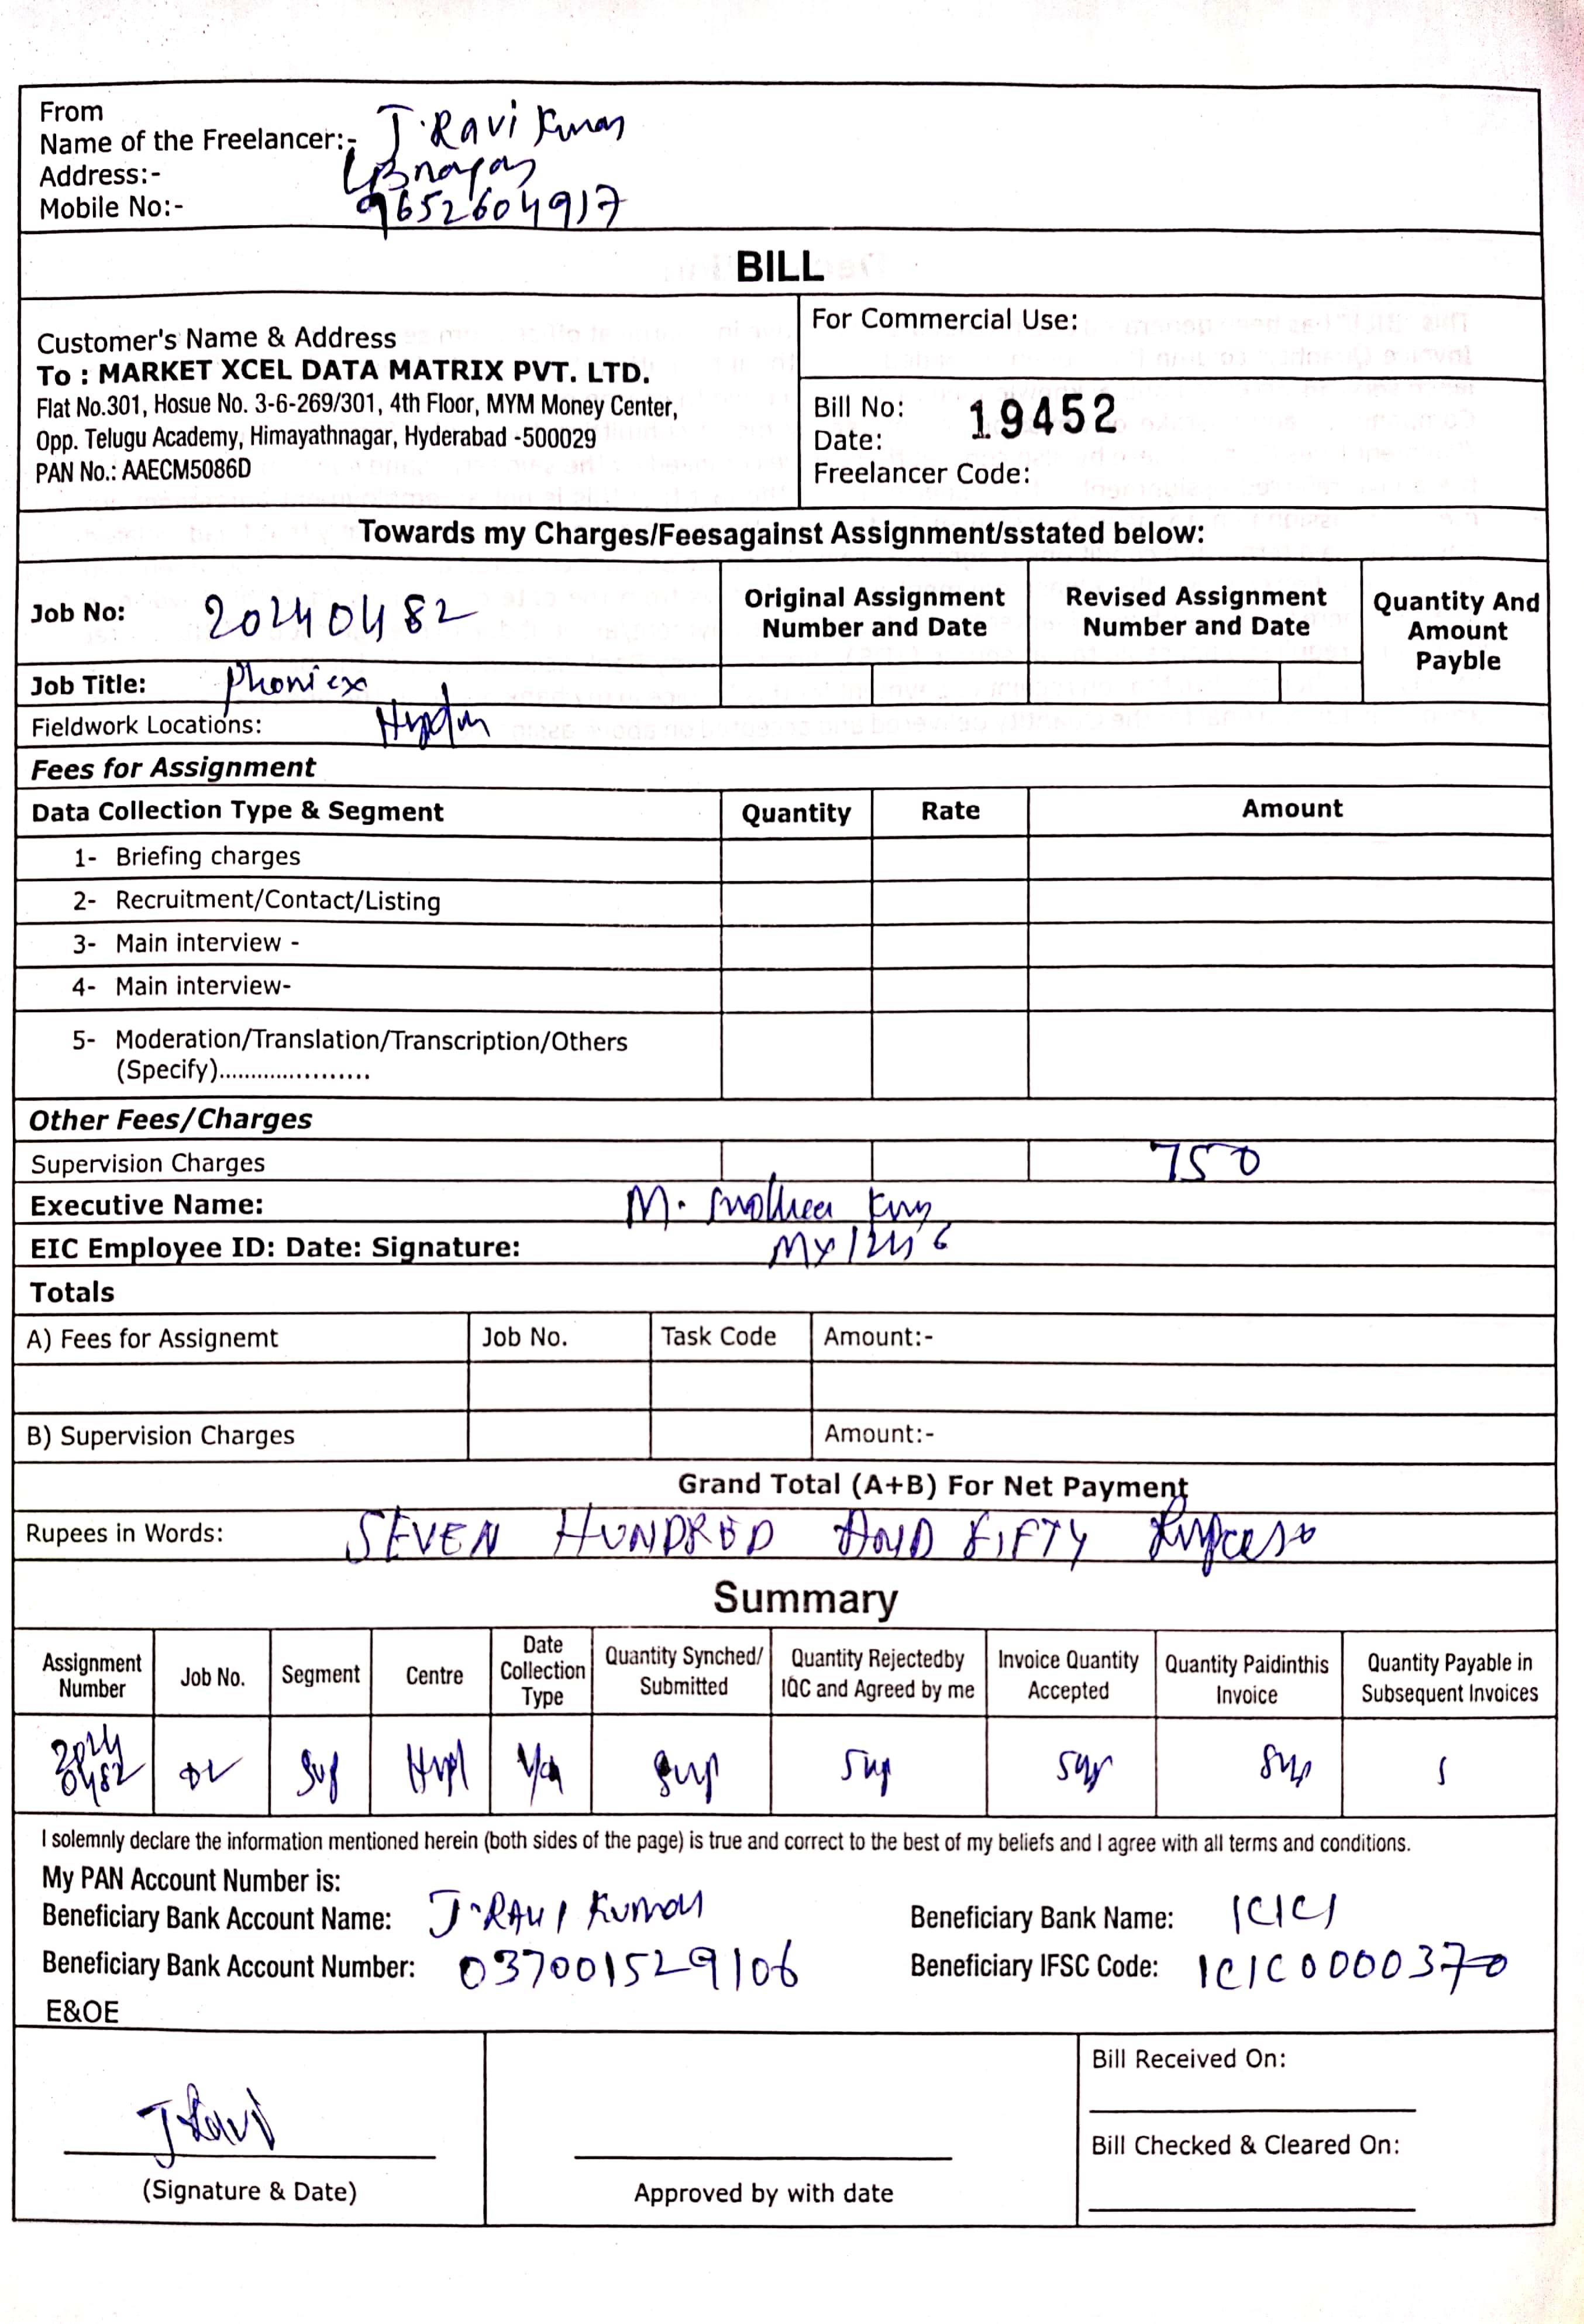 From
Name of the Freelancer:- J. Ravi Kumar
Address:- LB nagar
Mobile No:- 9652604917
BILL
Customer's Name & Address
To : MARKET XCEL DATA MATRIX PVT. LTD.
Flat No.301, Hosue No. 3-6-269/301, 4th Floor, MYM Money Center,
Opp. Telugu Academy, Himayathnagar, Hyderabad -500029
PAN No.: AAECM5086D
For Commercial Use:
Bill No: 19452
Date:
Freelancer Code:
Towards my Charges/Feesagainst Assignment/sstated below:
Job No: 20240482
Original Assignment Number and Date
Revised Assignment Number and Date
Quantity And Amount Payble
Job Title: Phoniex
Fieldwork Locations:
Fees for Assignment
Data Collection Type & Segment Quantity Rate Amount
1- Briefing charges
2- Recruitment/Contact/Listing
3- Main interview -
4- Main interview-
5- Moderation/Translation/Transcription/Others
(Specify).....................
Other Fees/Charges
Supervision Charges 750
Executive Name: M.
EIC Employee ID: Date: Signature:
Totals
A) Fees for Assignemt Job No. Task Code Amount:-
B) Supervision Charges Amount:-
Grand Total (A+B) For Net Payment
Rupees in Words: SEVEN HUNDRED AND FIFTY Rupees
Summary
Assignment Number
Job No.
Segment
Centre
Date Collection Type
Quantity Synched/ Submitted
Quantity Rejectedby IQC and Agreed by me
Invoice Quantity Accepted
Quantity Paidinthis Invoice
Quantity Payable in Subsequent Invoices
2024
0482
Sup Sup Sup Sup
I solemnly declare the information mentioned herein (both sides of the page) is true and correct to the best of my beliefs and I agree with all terms and conditions.
My PAN Account Number is:
Beneficiary Bank Account Name: J. RAVI KUMAR Beneficiary Bank Name: ICICI
Beneficiary Bank Account Number: 037001529106 Beneficiary IFSC Code: ICIC0000370
E&OE
J Ravi
(Signature & Date)
Approved by with date
Bill Received On:
Bill Checked & Cleared On: